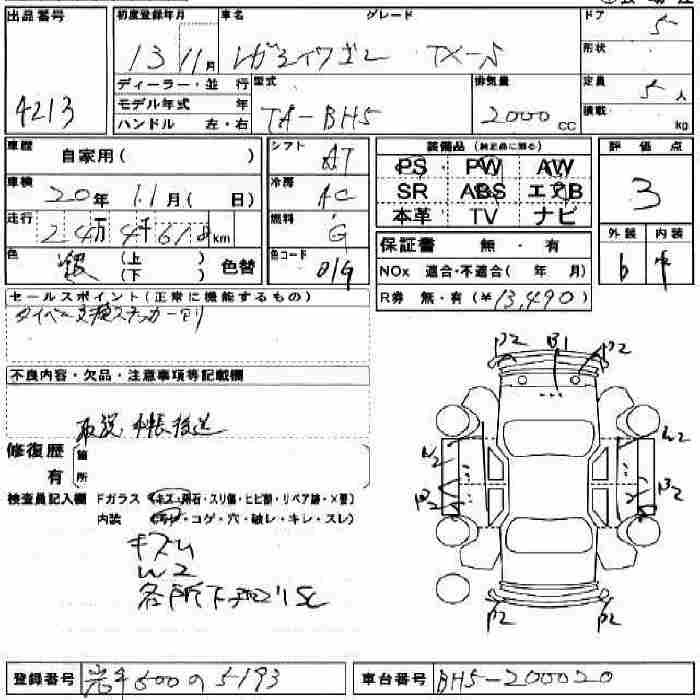 出品番号 初度登録年月 車名 グレード ドア 5
4213 13 11月 レガシイワゴン TX-S 形状
ディーラー・並 行 型式 排気量 定員 5人
モデル年式 年 TA-BH5 2000cc 積載 kg
ハンドル 左・右
車歴 自家用( ) シフト AT 装備品 (純正品に限る) 評価点
PS PW AW
車検 20年 11月( 日) 冷房 AC SR ABS エアB 3
走行 24万4千618km 燃料 G 本革 TV ナビ 外装 内装
色 銀 (上) (下) 色替 色コード 01G 保証書 無・有 b
NOx 適合・不適合( 年 月)
R券 無・有(¥13,490)
セールスポイント(正常に機能するもの)
タイベル交換ステッカー有り
不良内容・欠品・注意事項等記載欄
取説 手帳後送
修復歴 箇所
有
検査員記入欄 Fガラス (キズ・飛石・スリ傷・ヒビ割・リペア跡・×要)
内装 (・コゲ・穴・破レ・キレ・スレ)
キズム
W2
各所下廻りSC
P2 B1 P2
W2 W2
B2 B2
P2 P2
登録番号 岩手500の5193 車台番号 BH5-200020